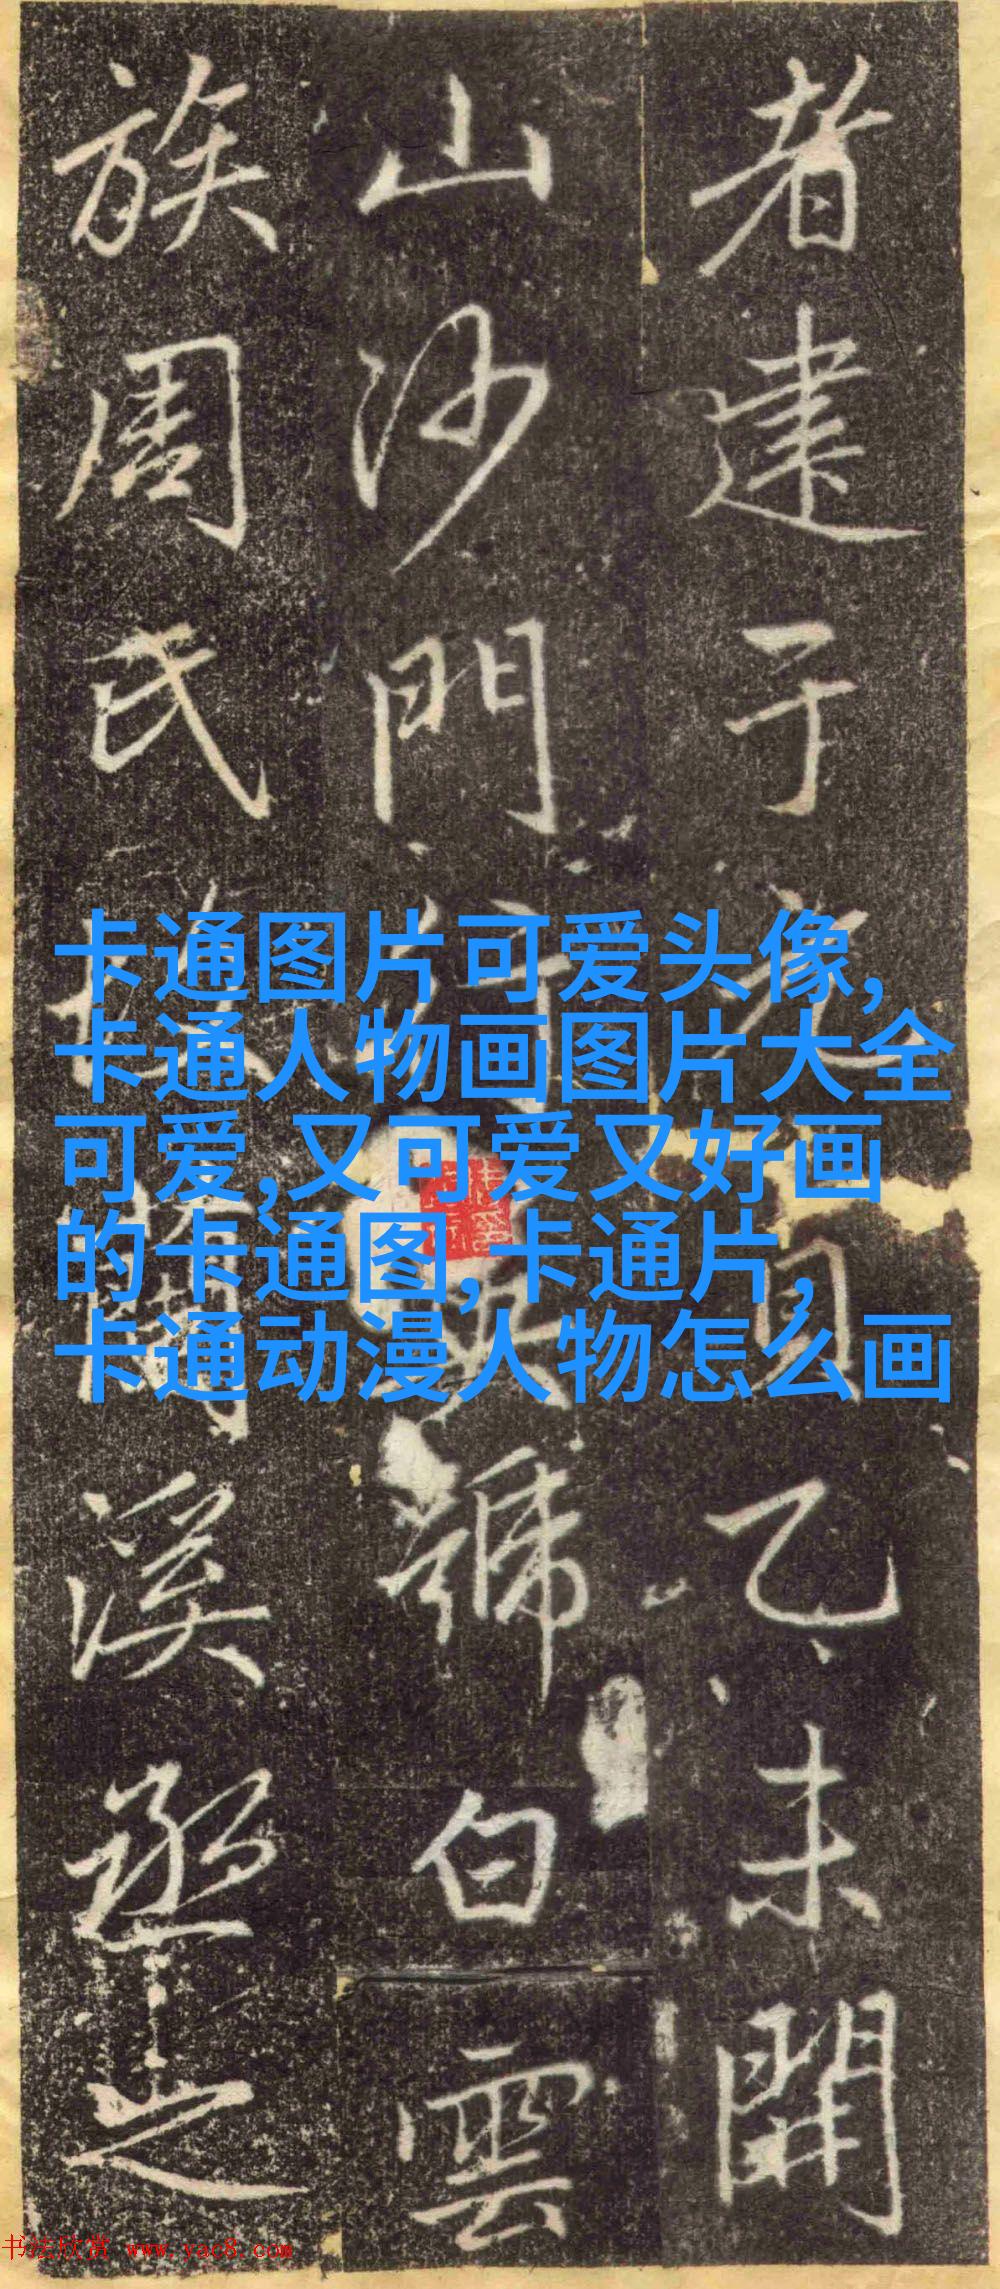 者建于貞乙未開
山沙門行英號白雲
族周氏溪丞之
卡通图片可爱头像,
卡通人物画图片大全
可爱,又可爱又好画
的卡通图,卡通片,
卡通动漫人物怎么画
书法欣赏 www.yac8.com